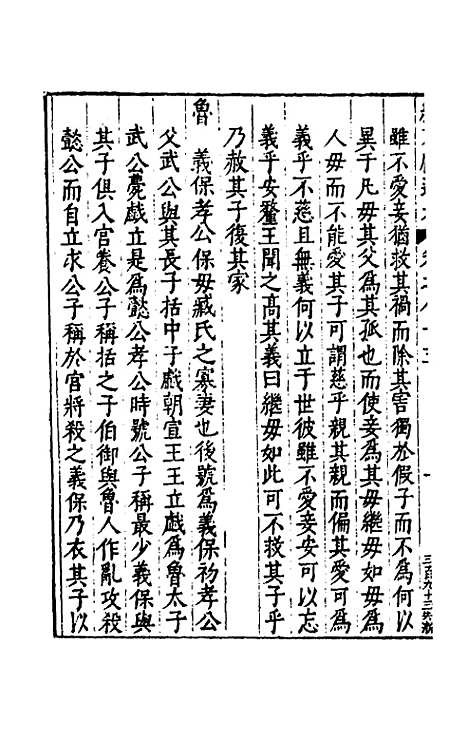 雖不愛妾猶救其禍而除其害獨於假子而不為何以
異于凡母其父為其孤也而使妾為其母繼母如母為
人母而不能愛其子可謂慈乎親其親而偏其愛可為
義乎不慈且無義何以立于世彼雖不愛妾安可以忘
義乎安釐王聞之高其義曰繼母如此可不救其子乎
乃赦其子復其家
魯　義保孝公保母臧氏之寡妻也後號為義保初孝公
父武公與其長子括中子戲朝宣王王立戲為魯太子
武公薨戲立是為懿公孝公時號公子稱最少義保與
其子俱入宮養公子稱括之子伯御與魯人作亂攻殺
懿公而自立求公子稱於宮將殺之義保乃衣其子以